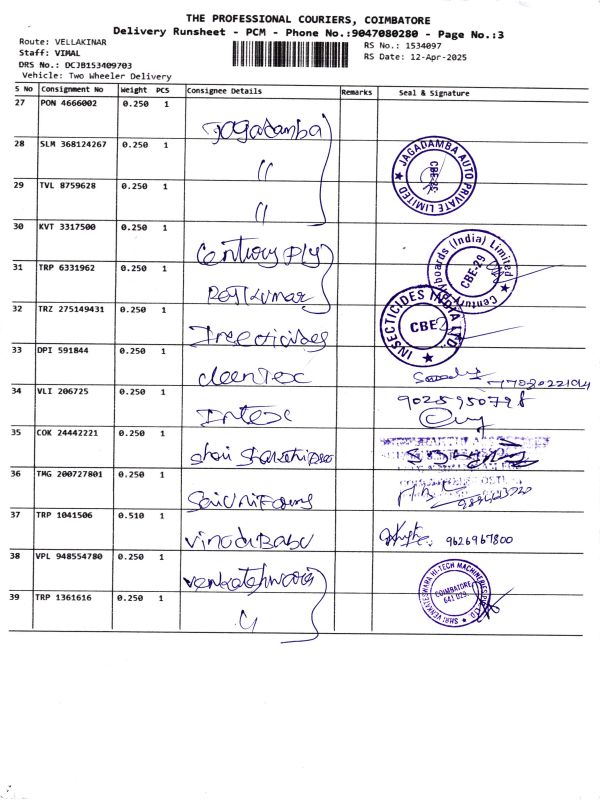 THE PROFESSIONAL COURIERS, COIMBATORE
Delivery Runsheet - PCM - Phone No.:9047080280 - Page No.:3
Route: VELLAKINAR
RS No.: 1534097
Staff: VIMAL
RS Date: 12-Apr-2025
DRS No.: DCJB153409703
Vehicle: Two Wheeler Delivery
S No Consignment No Weight PCS Consignee Details Remarks Seal & Signature
27 PON 4666002 0.250 1 Jagadamba
28 SLM 368124267 0.250 1 "
JAGADAMBA AUTO PRIVATE LIMITED
29 TVL 8759628 0.250 1 "
30 KVT 3317500 0.250 1 Century Ply
Century boards (India) Limited CBE-29
31 TRP 6331962 0.250 1
32 TRZ 275149431 0.250 1 Insecticides
INSECTICIDES INDIA LTD. CBE
33 DPI 591844 0.250 1 cleentex
34 VLI 206725 0.250 1 Intex
35 COK 24442221 0.250 1
36 TMG 200727801 0.250 1
37 TRP 1041506 0.510 1 Vinodibabu
9626967800
38 VPL 948554780 0.250 1
SHRI VENKATESHWARA HI-TECH MACHINERIES COIMBATORE 641 029.
39 TRP 1361616 0.250 1 "